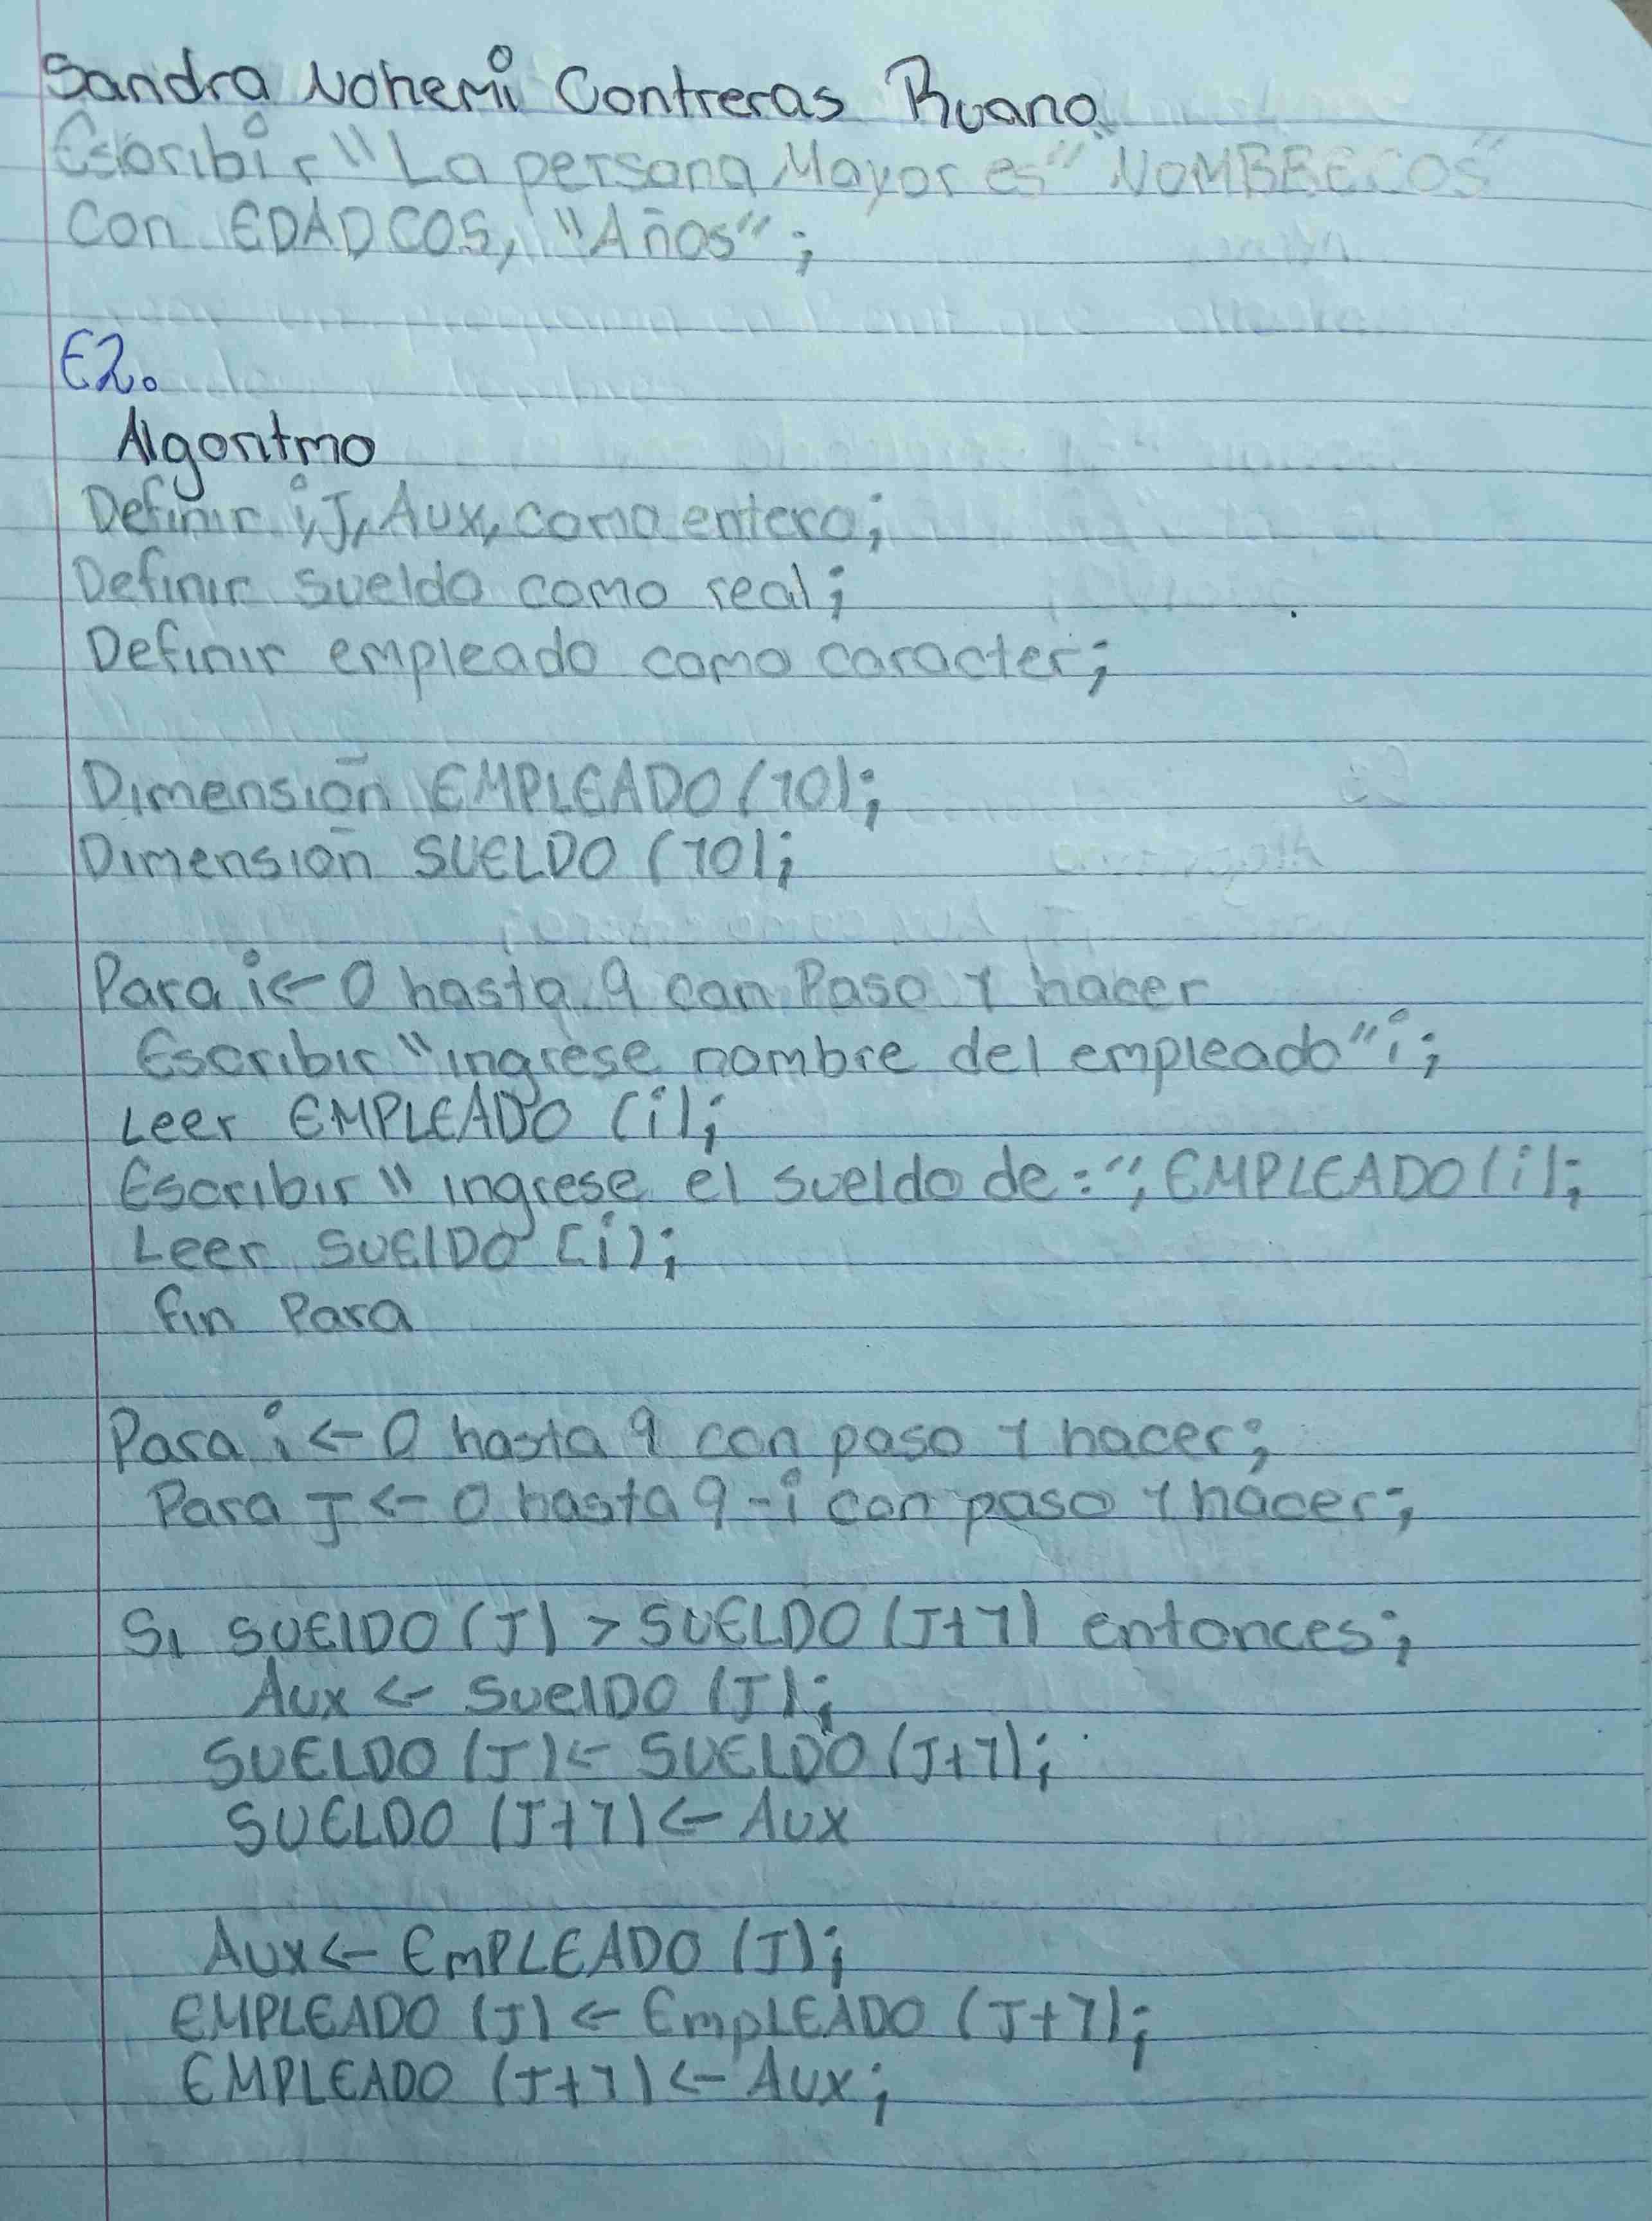 Sandra Nohemi Contreras Ruano
Escribir "La persona Mayor es" NOMBRECOS"
Con EDADCOS, "Años";
E2.
Algoritmo
Definir i, J, Aux, como entero;
Definir sueldo como real;
Definir empleado como caracter;
Dimensión EMPLEADO (10);
Dimensión SUELDO (10);
Para i ← 0 hasta 9 con Paso 1 hacer
Escribir "ingrese nombre del empleado" i;
Leer EMPLEADO (i);
Escribir "ingrese el sueldo de: ", EMPLEADO (i);
Leer SUElDO (i);
fin Para
Para i ← 0 hasta 9 con paso 1 hacer;
Para J ← 0 hasta 9-i con paso 1 hacer;
Si SUElDO (J) > SUELDO (J+1) entonces;
Aux ← SuelDO (J);
SUELDO (J) ← SUELDO (J+1);
SUELDO (J+1) ← Aux
Aux ← EmPLEADO (J);
EMPLEADO (J) ← EmpLEADO (J+1);
EMPLEADO (J+1) ← Aux;